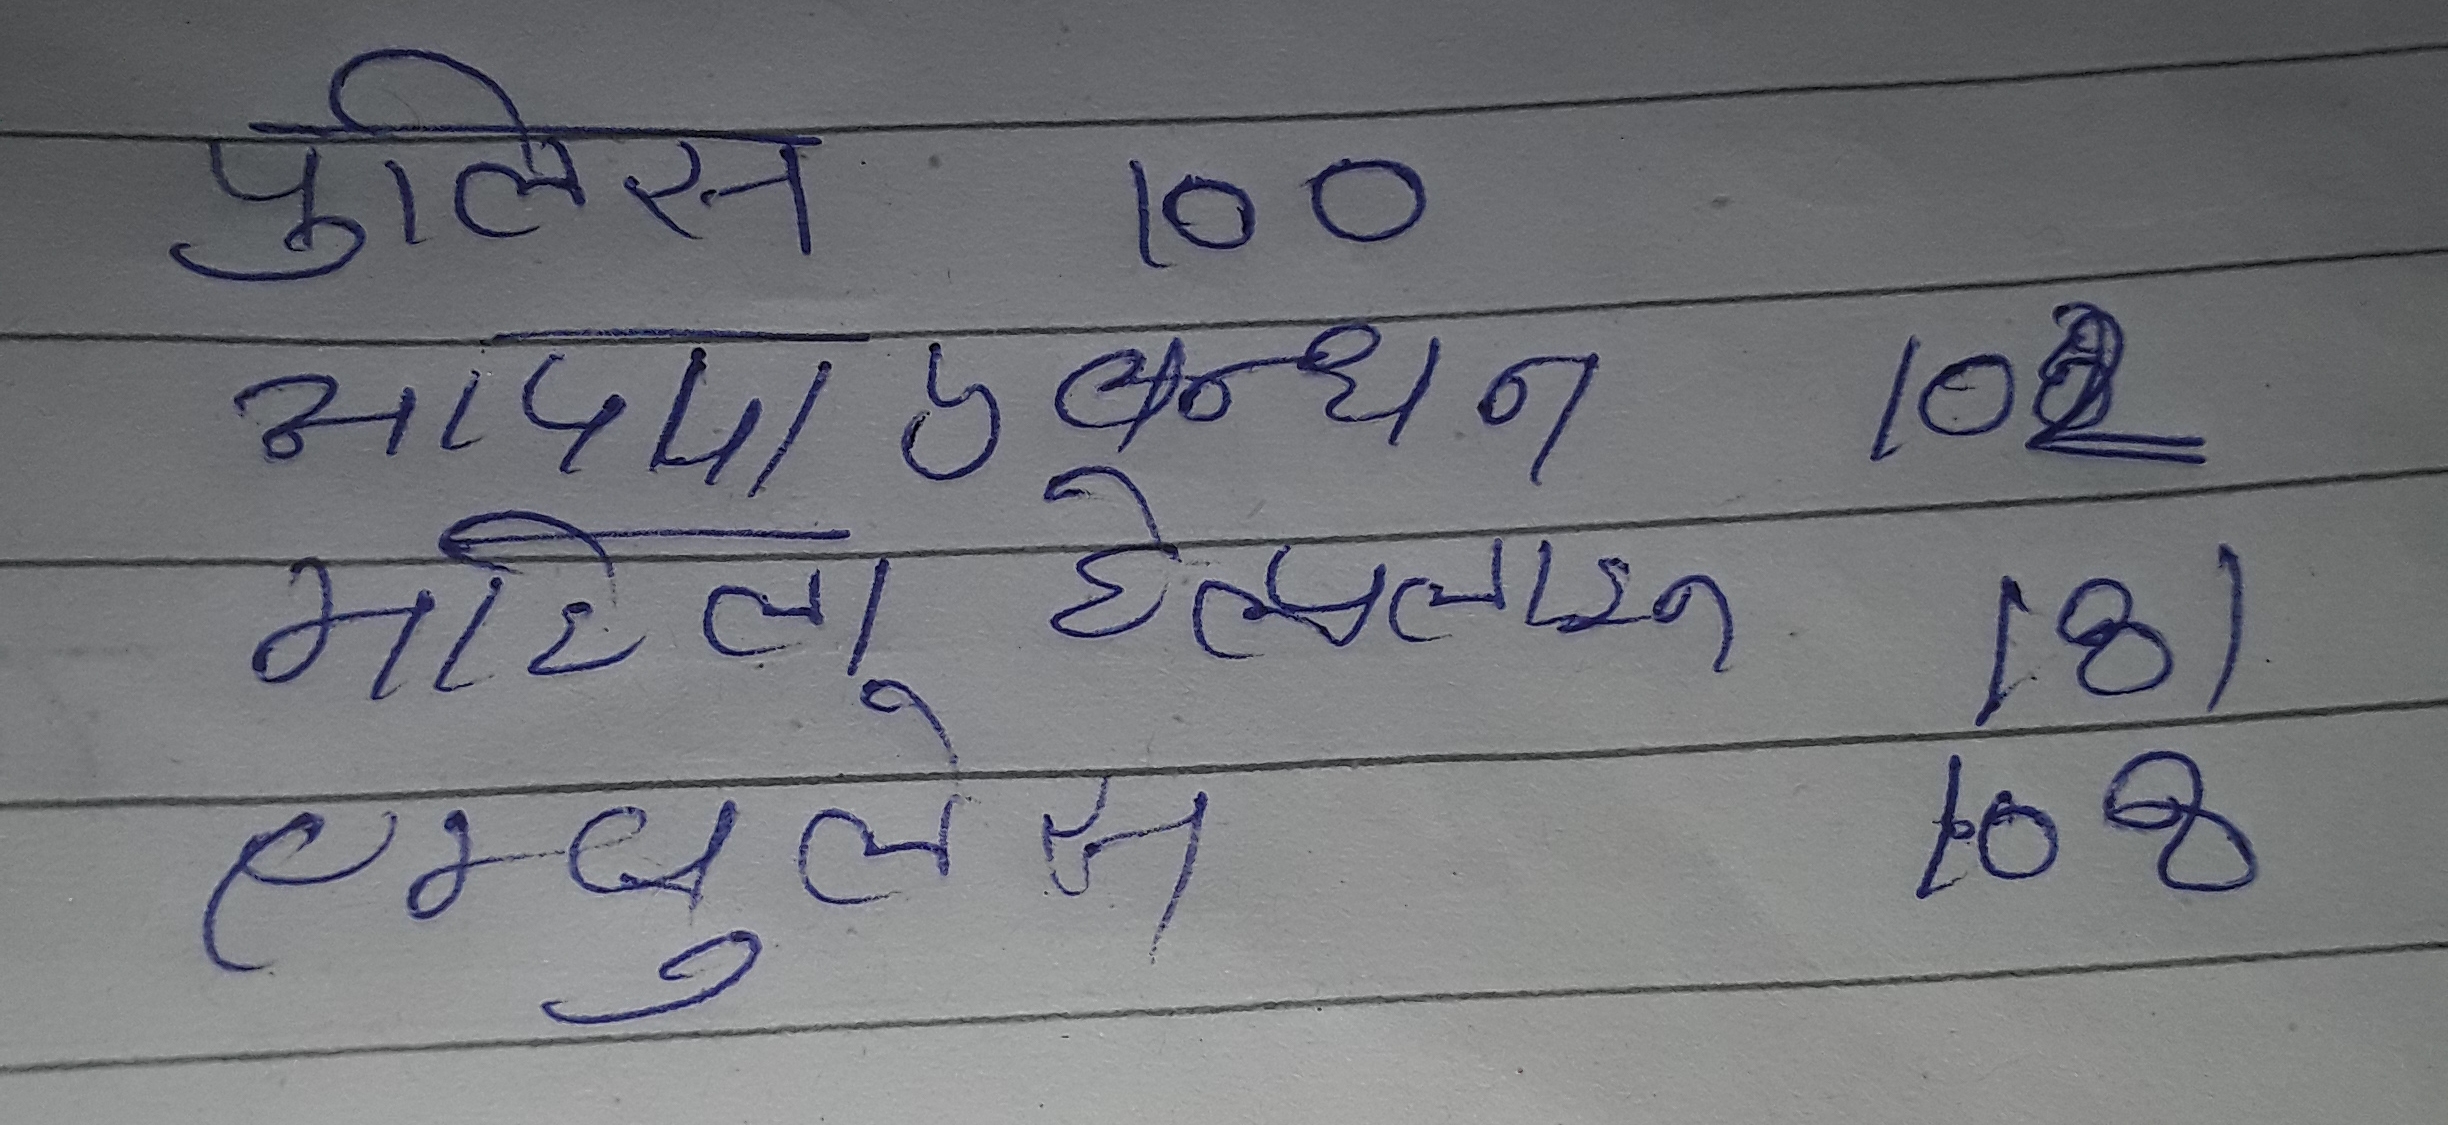 पुलिस 100
आपदा प्रबन्धन 102
महिला हेल्पलाइन 181
एम्बुलेस 108